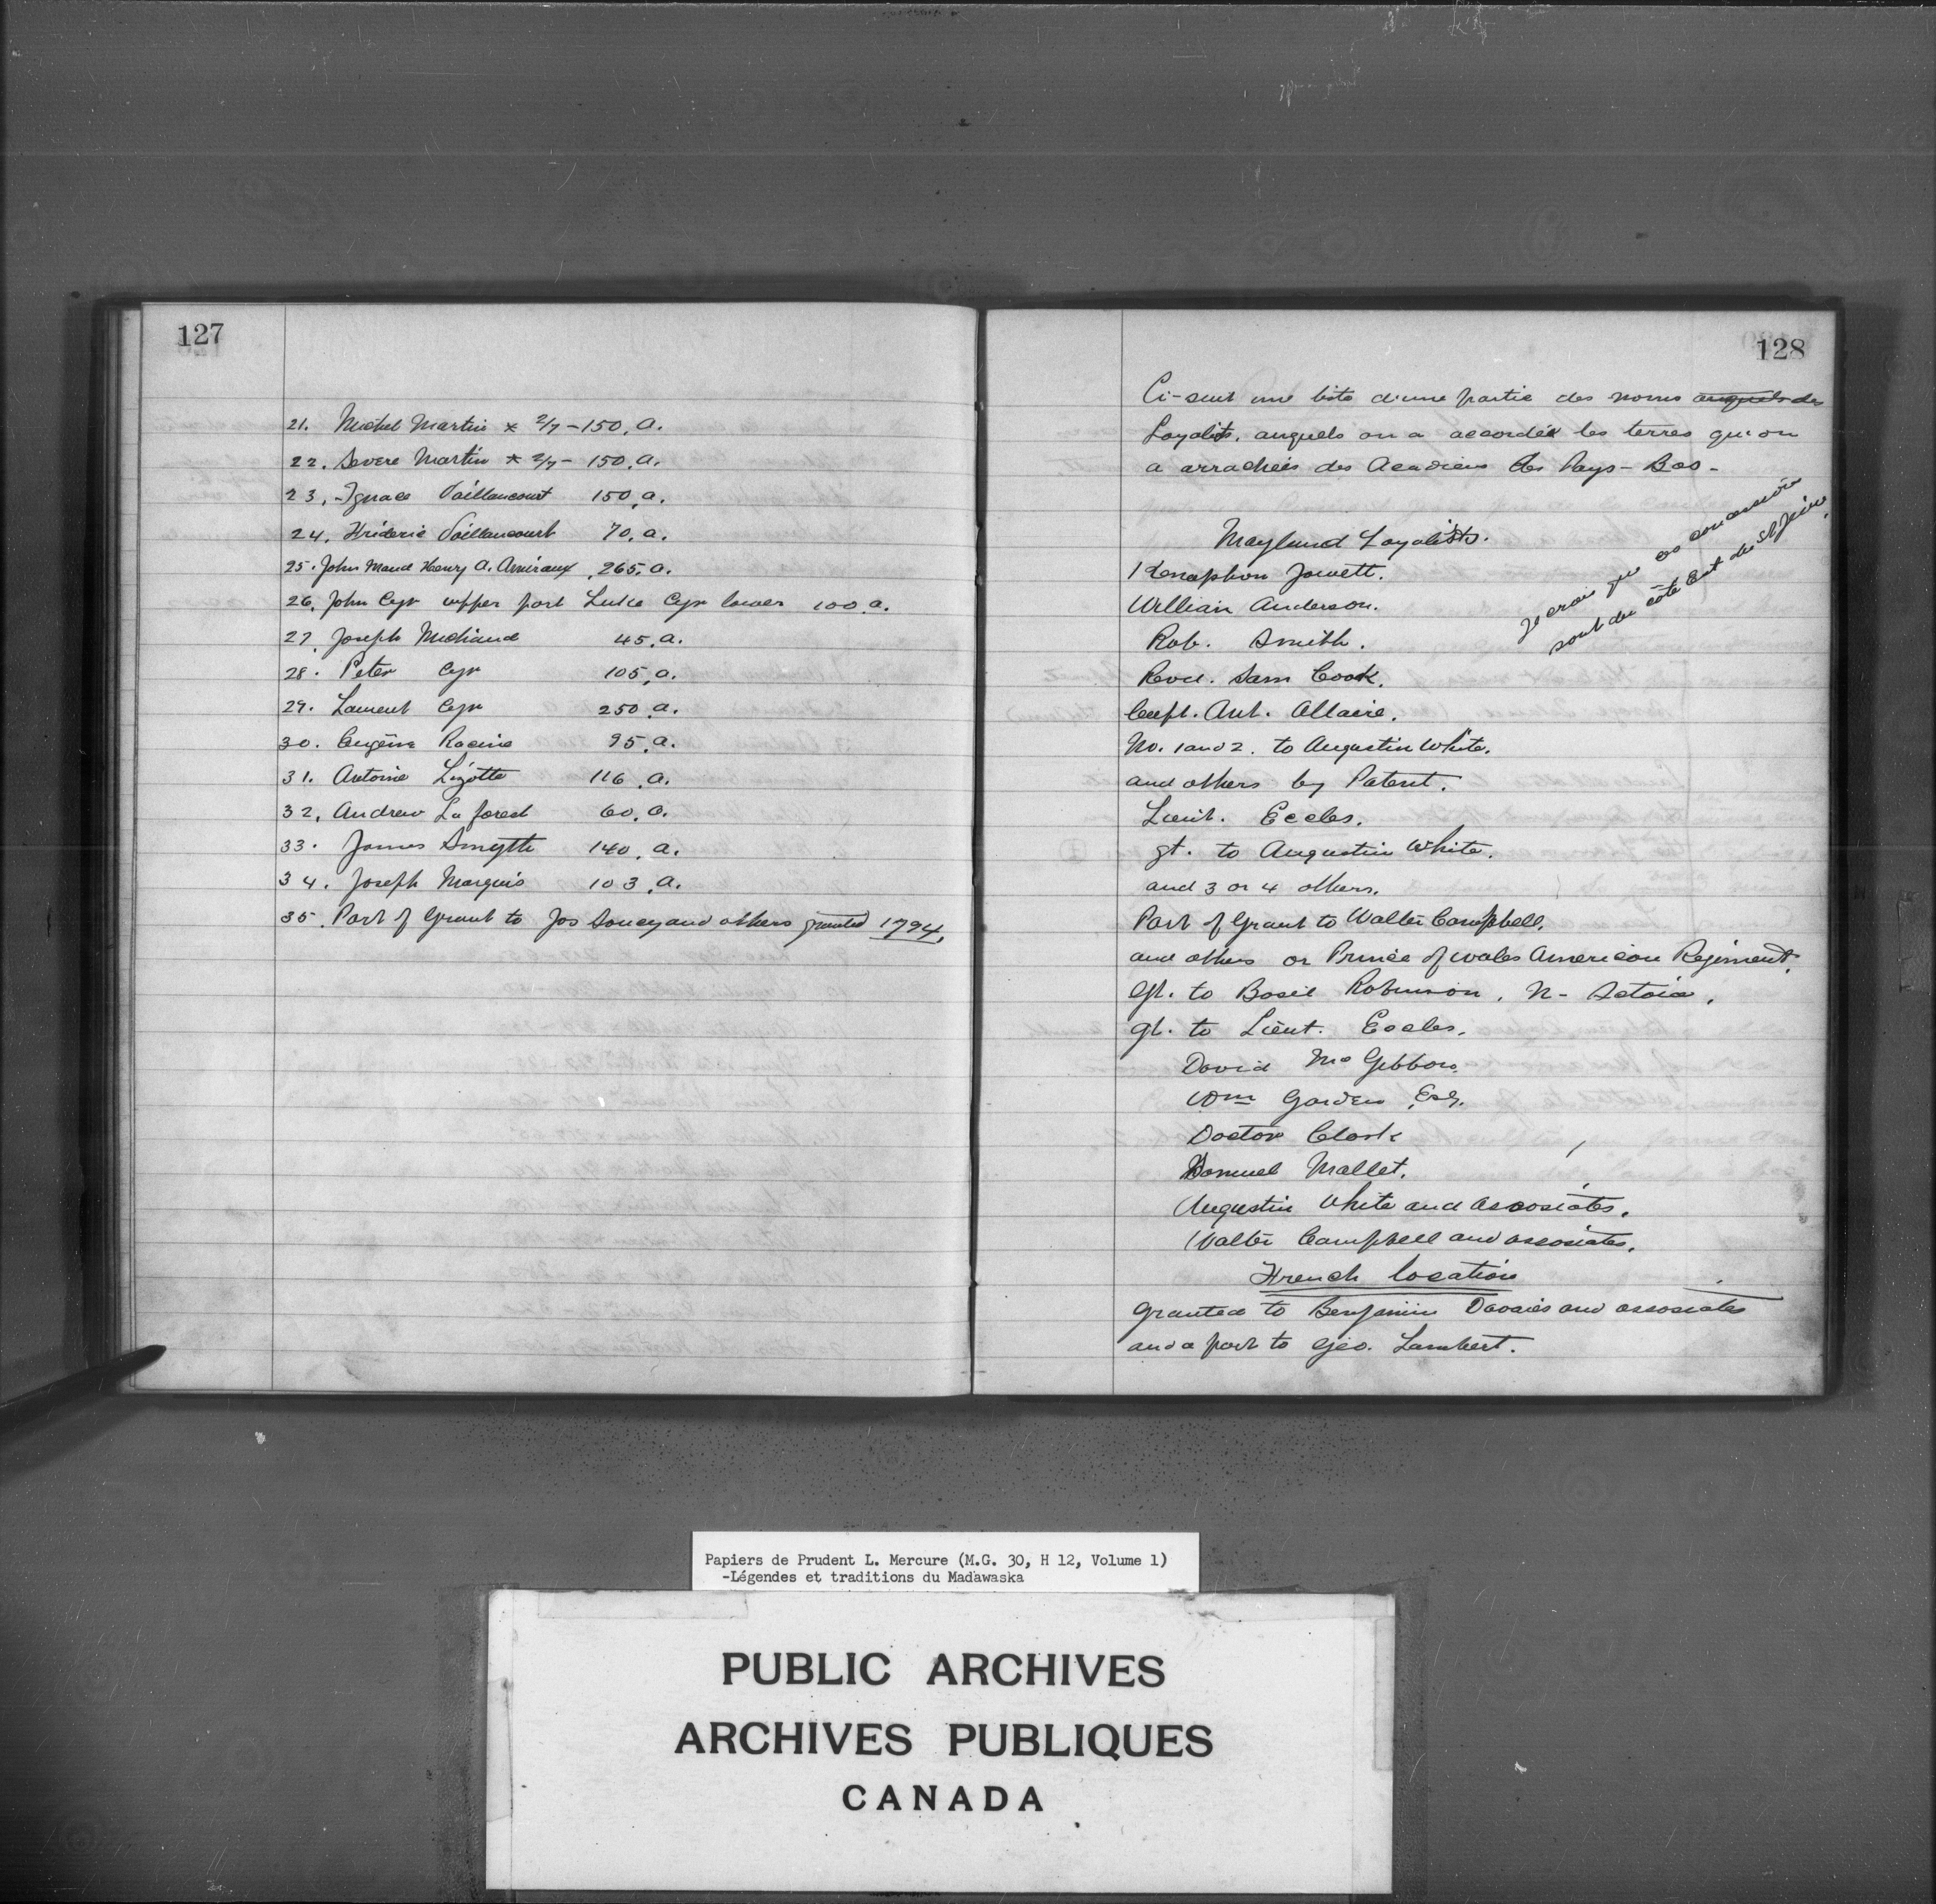 127
21. Michel Martin * 2/7 - 150. a.
22. Severe Martin * 2/7 - 150. a.
23. Ignace Vaillancourt 150. a.
24. Frideric Vaillancourt 70. a.
25. John Maud Henry A. Amiraux 265. a.
26. John Cyr upper part Luke Cyr lower 100. a.
27. Joseph Michaud 45. a.
28. Peter Cyr 105. a.
29. Laurent Cyr 250. a.
30. Eugène Racine 95. a.
31. Antoine Lizotte 116. a.
32. Andrew La forest 60. a.
33. James Smyth 140. a.
34. Joseph Marquis 103. a.
35. Part of Grant to Jos Soucy and others granted 1794.
128
Ci-suit une liste d'une partie des noms auquels des
Loyalists, auquels on a accordée les terres qu'on
a arrachées des Acadiens des Pays-Bas -
Je crois que ces concessions
sont du côté Est du St Jean.
Mayland Loyalists.
Xenophon Jowett.
William Anderson.
Rob. Smith.
Revd. Sam Cook.
Capt. Ant. Allaire.
No. 1 and 2. to Augustin White.
and others by Patent.
Lieut. Eccles.
gt. to Augustin White.
and 3 or 4 others.
Part of Grant to Walter Campbell.
and others or Prince of wales American Regiment.
gt. to Basil Robinson. N-
gt. to Lieut. Eccles.
David McGibbon.
Wm Garden Esq.
Doctor Clark
Samuel Mallet.
Augustin White and associates.
Walter Campbell and associates.
French location
granted to Benjamin Davaies and associates
and a part to Geo. Lambert.
Papiers de Prudent L. Mercure (M.G. 30, H 12, Volume 1)
-Légendes et traditions du Madawaska
PUBLIC ARCHIVES
ARCHIVES PUBLIQUES
CANADA